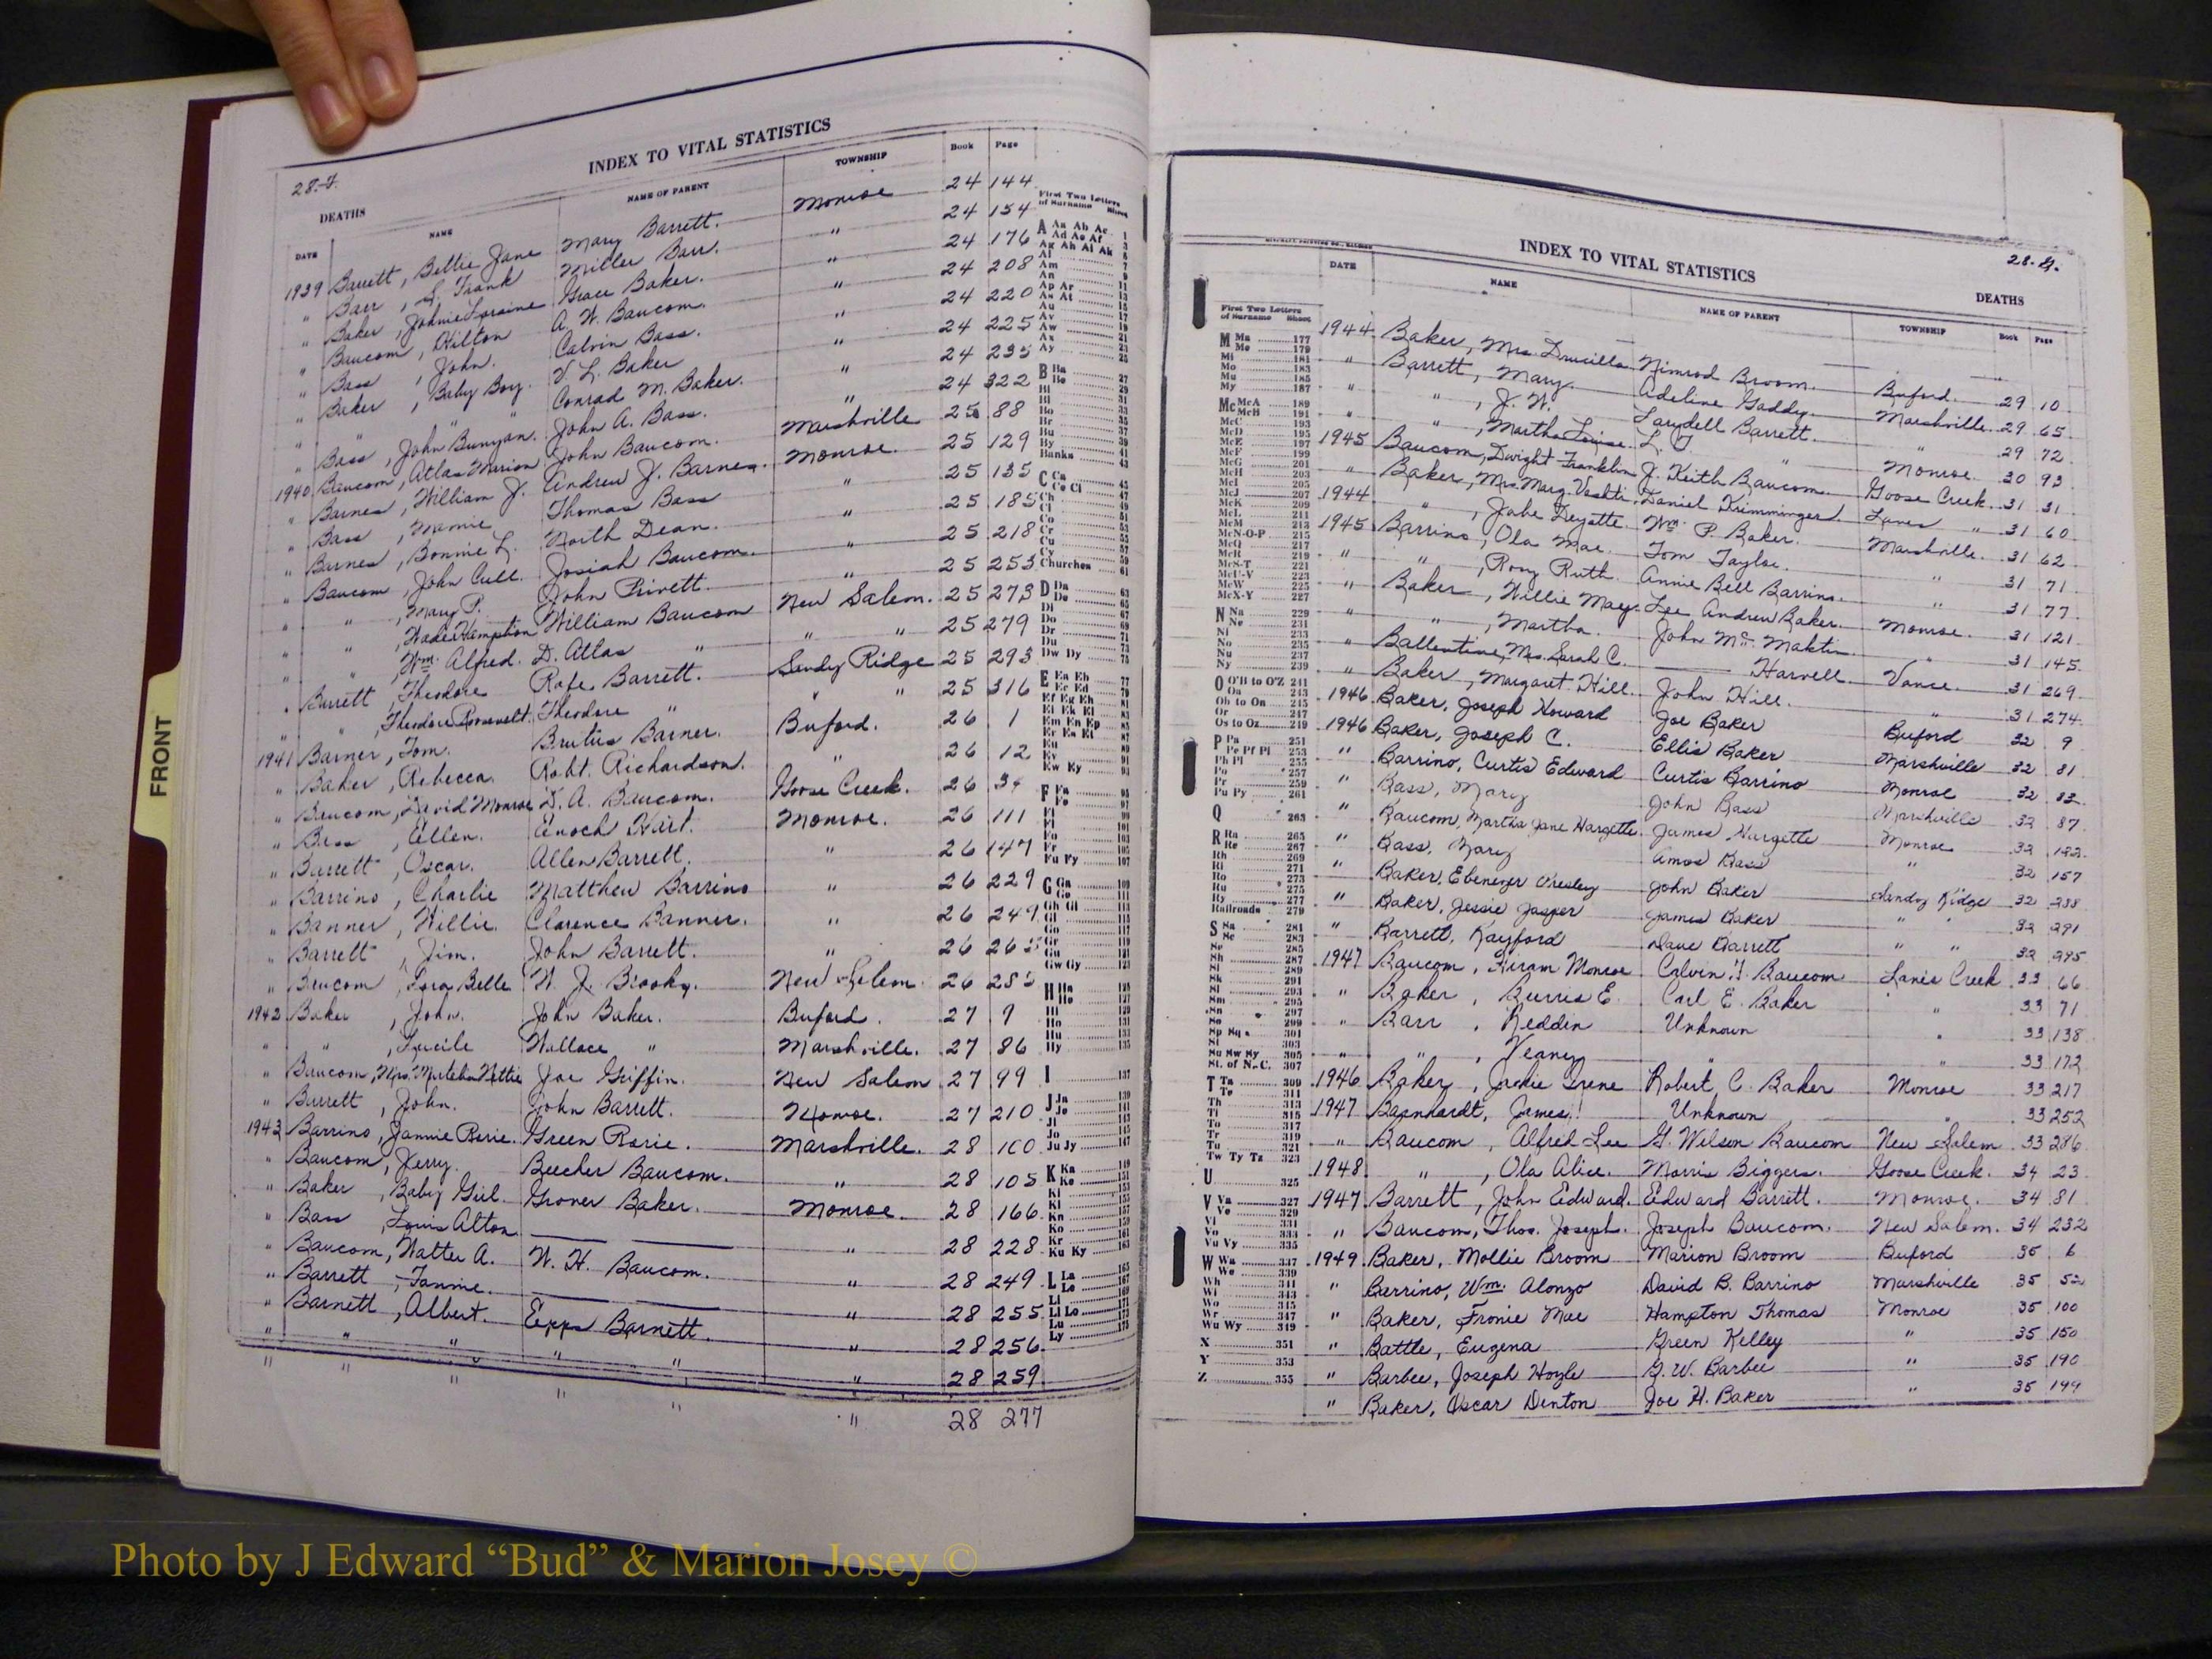 INDEX TO VITAL STATISTICS
28-F.
DEATHS
DATE NAME NAME OF PARENT TOWNSHIP Book Page
1939 Barrett, Bettie Jane Mary Barrett. Monroe 24 144
" Barr, S. Frank Miller Barr. " 24 154
" Baker, Johnie Loraine Grace Baker. " 24 176
" Baucom, Hilton A. W. Baucom. " 24 208
" Bass, John. Calvin Bass. " 24 220
" Baker, Baby Boy. V. L. Baker " 24 225
" " " Conrad M. Baker. " 24 235
" Bass, John Bunyan. John A. Bass. " 24 322
1940 Baucom, Atlas Marion John Baucom. Marshville 25 88
" Barnes, William J. Andrew J. Barnes. Monroe. 25 129
" Bass, Mamie Thomas Bass " 25 135
" Barnes, Bonnie L. North Dean. " 25 185
" Baucom, John Cull. Josiah Baucom. " 25 218
" " , Mary P. John Privett. " 25 253
" " , Wade Hampton William Baucom New Salem. 25 273
" " , Wm. Alfred. D. Atlas " " " 25 279
" Barrett, Theodore Rafe Barrett. Sandy Ridge 25 293
" " , Theodore Roosevelt. Theodore " " " 25 316
1941 Barner, Tom. Brutus Barner. Buford. 26 1
" Baker, Rebecca. Robt. Richardson. " 26 12
" Baucom, David Monroe D. A. Baucom. Goose Creek. 26 34
" Bass, Ellen. Enoch Hart. Monroe. 26 111
" Barrett, Oscar. Allen Barrett. " 26 147
" Barrino, Charlie Matthew Barrino " 26 229
" Banner, Willie. Clarence Banner. " 26 249
" Barrett, Jim. John Barrett. " 26 26
" Baucom, Lora Belle W. J. Brooks. New Salem. 26 28
1942 Baker, John. John Baker. Buford. 27 9
" " , Lucile Wallace " Marshville. 27 86
" Baucom, Mrs. Nettie Joe Griffin. New Salem 27 99
" Barrett, John. John Barrett. Monroe. 27 210
1943 Barrino, Jannie Rorie. Green Rorie. Marshville. 28 100
" Baucom, Jerry. Beecher Baucom. " 28 105
" Baker, Baby Girl. Grover Baker. Monroe. 28 166
" Bass, Louis Alton " 28 228
" Baucom, Walter A. W. H. Baucom. " 28 249
" Barrett, Fannie. " 28 255
" Barnett, Albert. Epps Barnett. " 28 256
" " " " " " 28 259
" " " " " " 28 277
First Two Letters of Surname Sheet
A Aa Ab Ac
Ad Ae Af
Ag Ah Ai Ak
B Ba 27
Be 29
Banks 43
C Ca 45
Churches 61
D Da 63
Dw Dy 75
E Ea Eb 77
F Fa 95
Fu Fy 107
G Ga 109
Gw Gy 123
H Ha
Hy 135
I 137
J Ja 139
Ju Jy 147
K Ka 149
Ku Ky 163
L La 165
Ly 175
INDEX TO VITAL STATISTICS
28-G.
DEATHS
DATE NAME NAME OF PARENT TOWNSHIP Book Page
1944 Baker, Mrs. Drucilla Nimrod Broom. Buford. 29 10
" Barrett, Mary. Adeline Gaddy. Marshville. 29 65
" " , J. W. Larydell Barrett. " 29 72
" " , Martha Louise. L. J. " Monroe. 30 93
1945 Baucom, Dwight Franklin J. Keith Baucom. Goose Creek. 31 31
" Baker, Mrs. Marg. Vashti. Daniel Krimminger. Lanes " 31 60
1944 " , Jabe Deyette. Wm. P. Baker. Marshville. 31 62
1945 Barrino, Ola Mae. Tom Taylor. " 31 71
" " , Rony Ruth. Annie Bell Barrino. " 31 77
" Baker, Willie May. Lee Andrew Baker. Monroe. 31 121
" " , Martha. John Mc. Maktin. " 31 145
" Ballentine, Mrs. Sarah C. Harvell. Vance. 31 269
" Baker, Margaret Hill. John Hill. " 31 274
1946 Baker, Joseph Howard Joe Baker Buford 32 9
1946 Baker, Joseph C. Ellis Baker Marshville 32 81
" Barrino, Curtis Edward Curtis Barrino Monroe 32 83
" Bass, Mary John Bass Marshville 32 87
" Baucom, Martha Jane Hargette James Hargette Monroe 32 122
" Bass, Mary Amos Bass " 32 157
" Baker, Ebenezer Presley John Baker Sandy Ridge 32 288
" Baker, Jessie Jasper James Baker " " 32 291
" Barrett, Rayford Dave Barrett " " 32 295
1947 Baucom, Hiram Monroe Calvin J. Baucom Lanes Creek 33 66
" Baker, Burris E. Carl E. Baker " 33 71
" Barr, Reddin Unknown " 33 138
" " , Veany " " 33 172
1946 Baker, Jackie Irene Robert C. Baker Monroe 33 217
1947 Barnhardt, James Unknown " 33 252
" Baucom, Alfred Lee G. Wilson Baucom New Salem 33 286
1948 " , Ola Alice. Morris Biggers. Goose Creek. 34 23
1947 Barrett, John Edward. Edward Barrett. Monroe. 34 81
" Baucom, Thos. Joseph. Joseph Baucom. New Salem. 34 232
1949 Baker, Mollie Broom Marion Broom Buford 35 6
" Barrino, Wm. Alonzo David B. Barrino Marshville 35 52
" Baker, Fronie Mae Hampton Thomas Monroe 35 100
" Battle, Eugena Green Kelley " 35 150
" Barbee, Joseph Hoyle G. W. Barbee " 35 190
" Baker, Oscar Denton Joe H. Baker " 35 199
First Two Letters of Surname Sheet
M Ma 177
Me 179
Mi 181
Mo 183
Mu 185
My 187
Mc McA 189
McB 191
McC 193
McD 195
McE 197
McF 199
McG 201
McH 203
McI 205
McJ 207
McK 209
McL 211
McM 213
McN-O-P 215
McQ 217
McR 219
McS-T 221
McU-V 223
McW 225
McX-Y 227
N Na 229
Ne 231
Ni 233
No 235
Nu 237
Ny 239
O O'B to O'Z 241
Oa 243
Ob to On 245
Or 247
Os to Oz 249
P Pa 251
Pe Pf Pi 253
Ph Pl 255
Po 257
Pr 259
Pu Py 261
Q 263
R Ra 265
Re 267
Rh 269
Ri 271
Ro 273
Ru 275
Ry 277
Railroads 279
S Sa 281
Sc 283
Se 285
Sh 287
Si 289
Sk 291
Sl 293
Sm 295
Sn 297
So 299
Sp Sq 301
St 303
Su Sw Sy 305
St. of N. C. 307
T Ta 309
Te 311
Th 313
Ti 315
To 317
Tr 319
Tu 321
Tw Ty Tz 323
U 325
V Va 327
Ve 329
Vi 331
Vo 333
Vu Vy 335
W Wa 337
We 339
Wh 341
Wi 343
Wo 345
Wr 347
Wu Wy 349
X 351
Y 353
Z 355
FRONT
Photo by J Edward “Bud” & Marion Josey ©